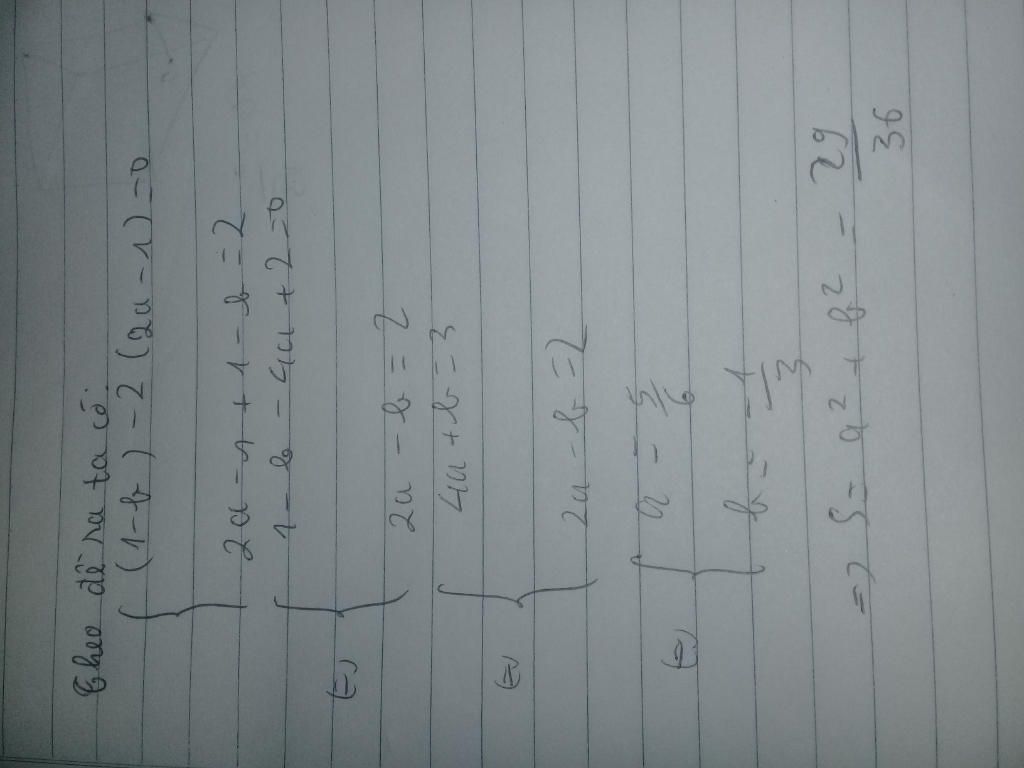 Theo đề ra ta có:
(1-b) - 2 (2a - 1) = 0
2a - 1 + 1 - b = 2
1 - b - 4a + 2 = 0
(=)
2a - b = 2
4a + b = 3
(=)
2a - b = 2
a = 5/6
(=)
b = -1/3
=> S = a² + b² = 29/36